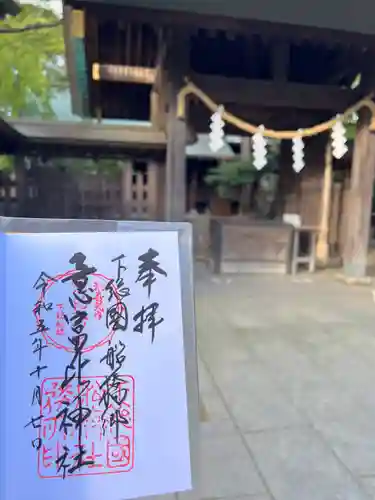 奉拝
下総国船橋郷
意富比神社
令和五年十月廿日